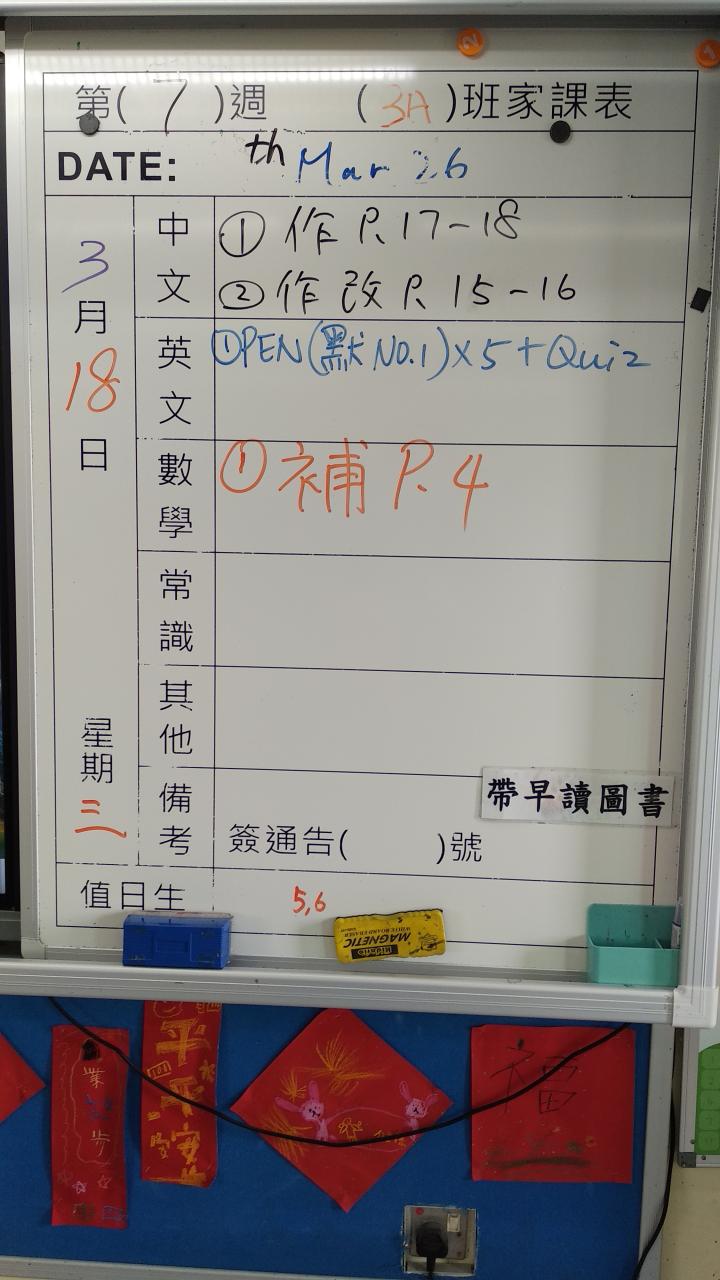 第( 7 )週 ( 3A )班家課表
DATE: th Mar 26
3月18日
星期三
中文
① 作 P. 17-18
② 作 改 P. 15-16
英文
① PEN (默 NO.1) x 5 + Quiz
數學
① 補 P. 4
常識
其他
備考
帶早讀圖書
簽通告( )號
值日生 5,6
MAGNETIC
WHITE BOARD ERASER
平平安安
福